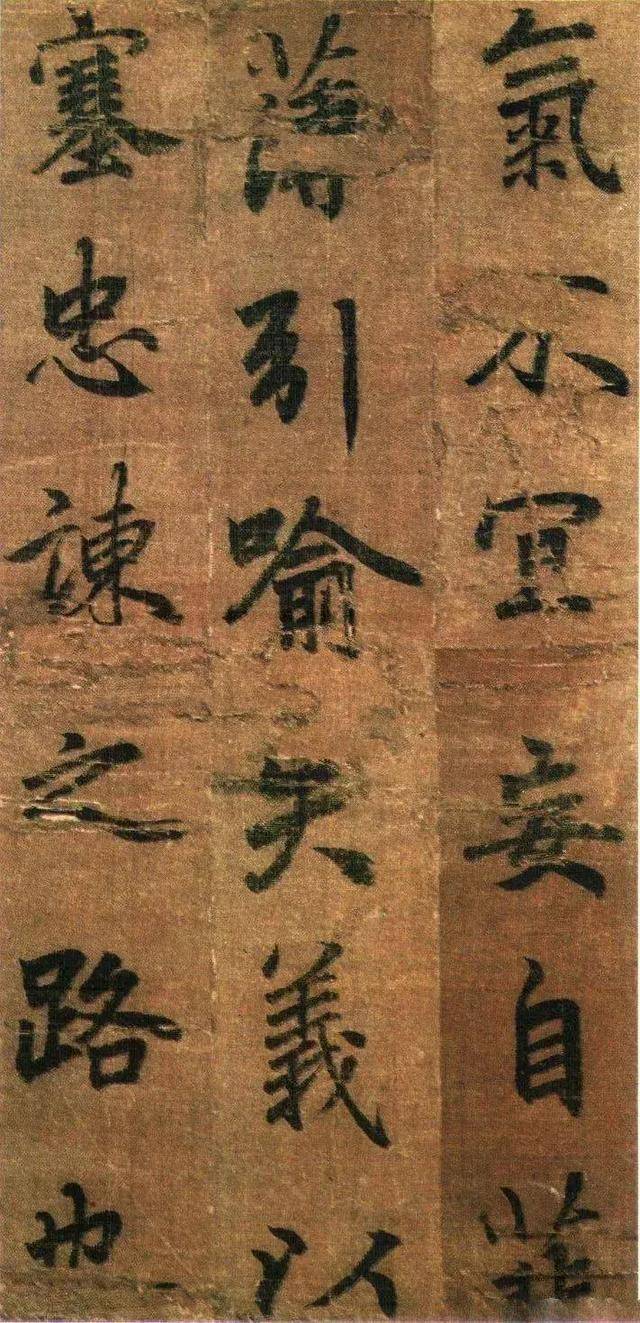 氣不宜妄自菲
薄引喻失義以
塞忠諫之路也